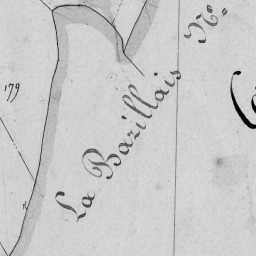 179
La Bazillais
N°